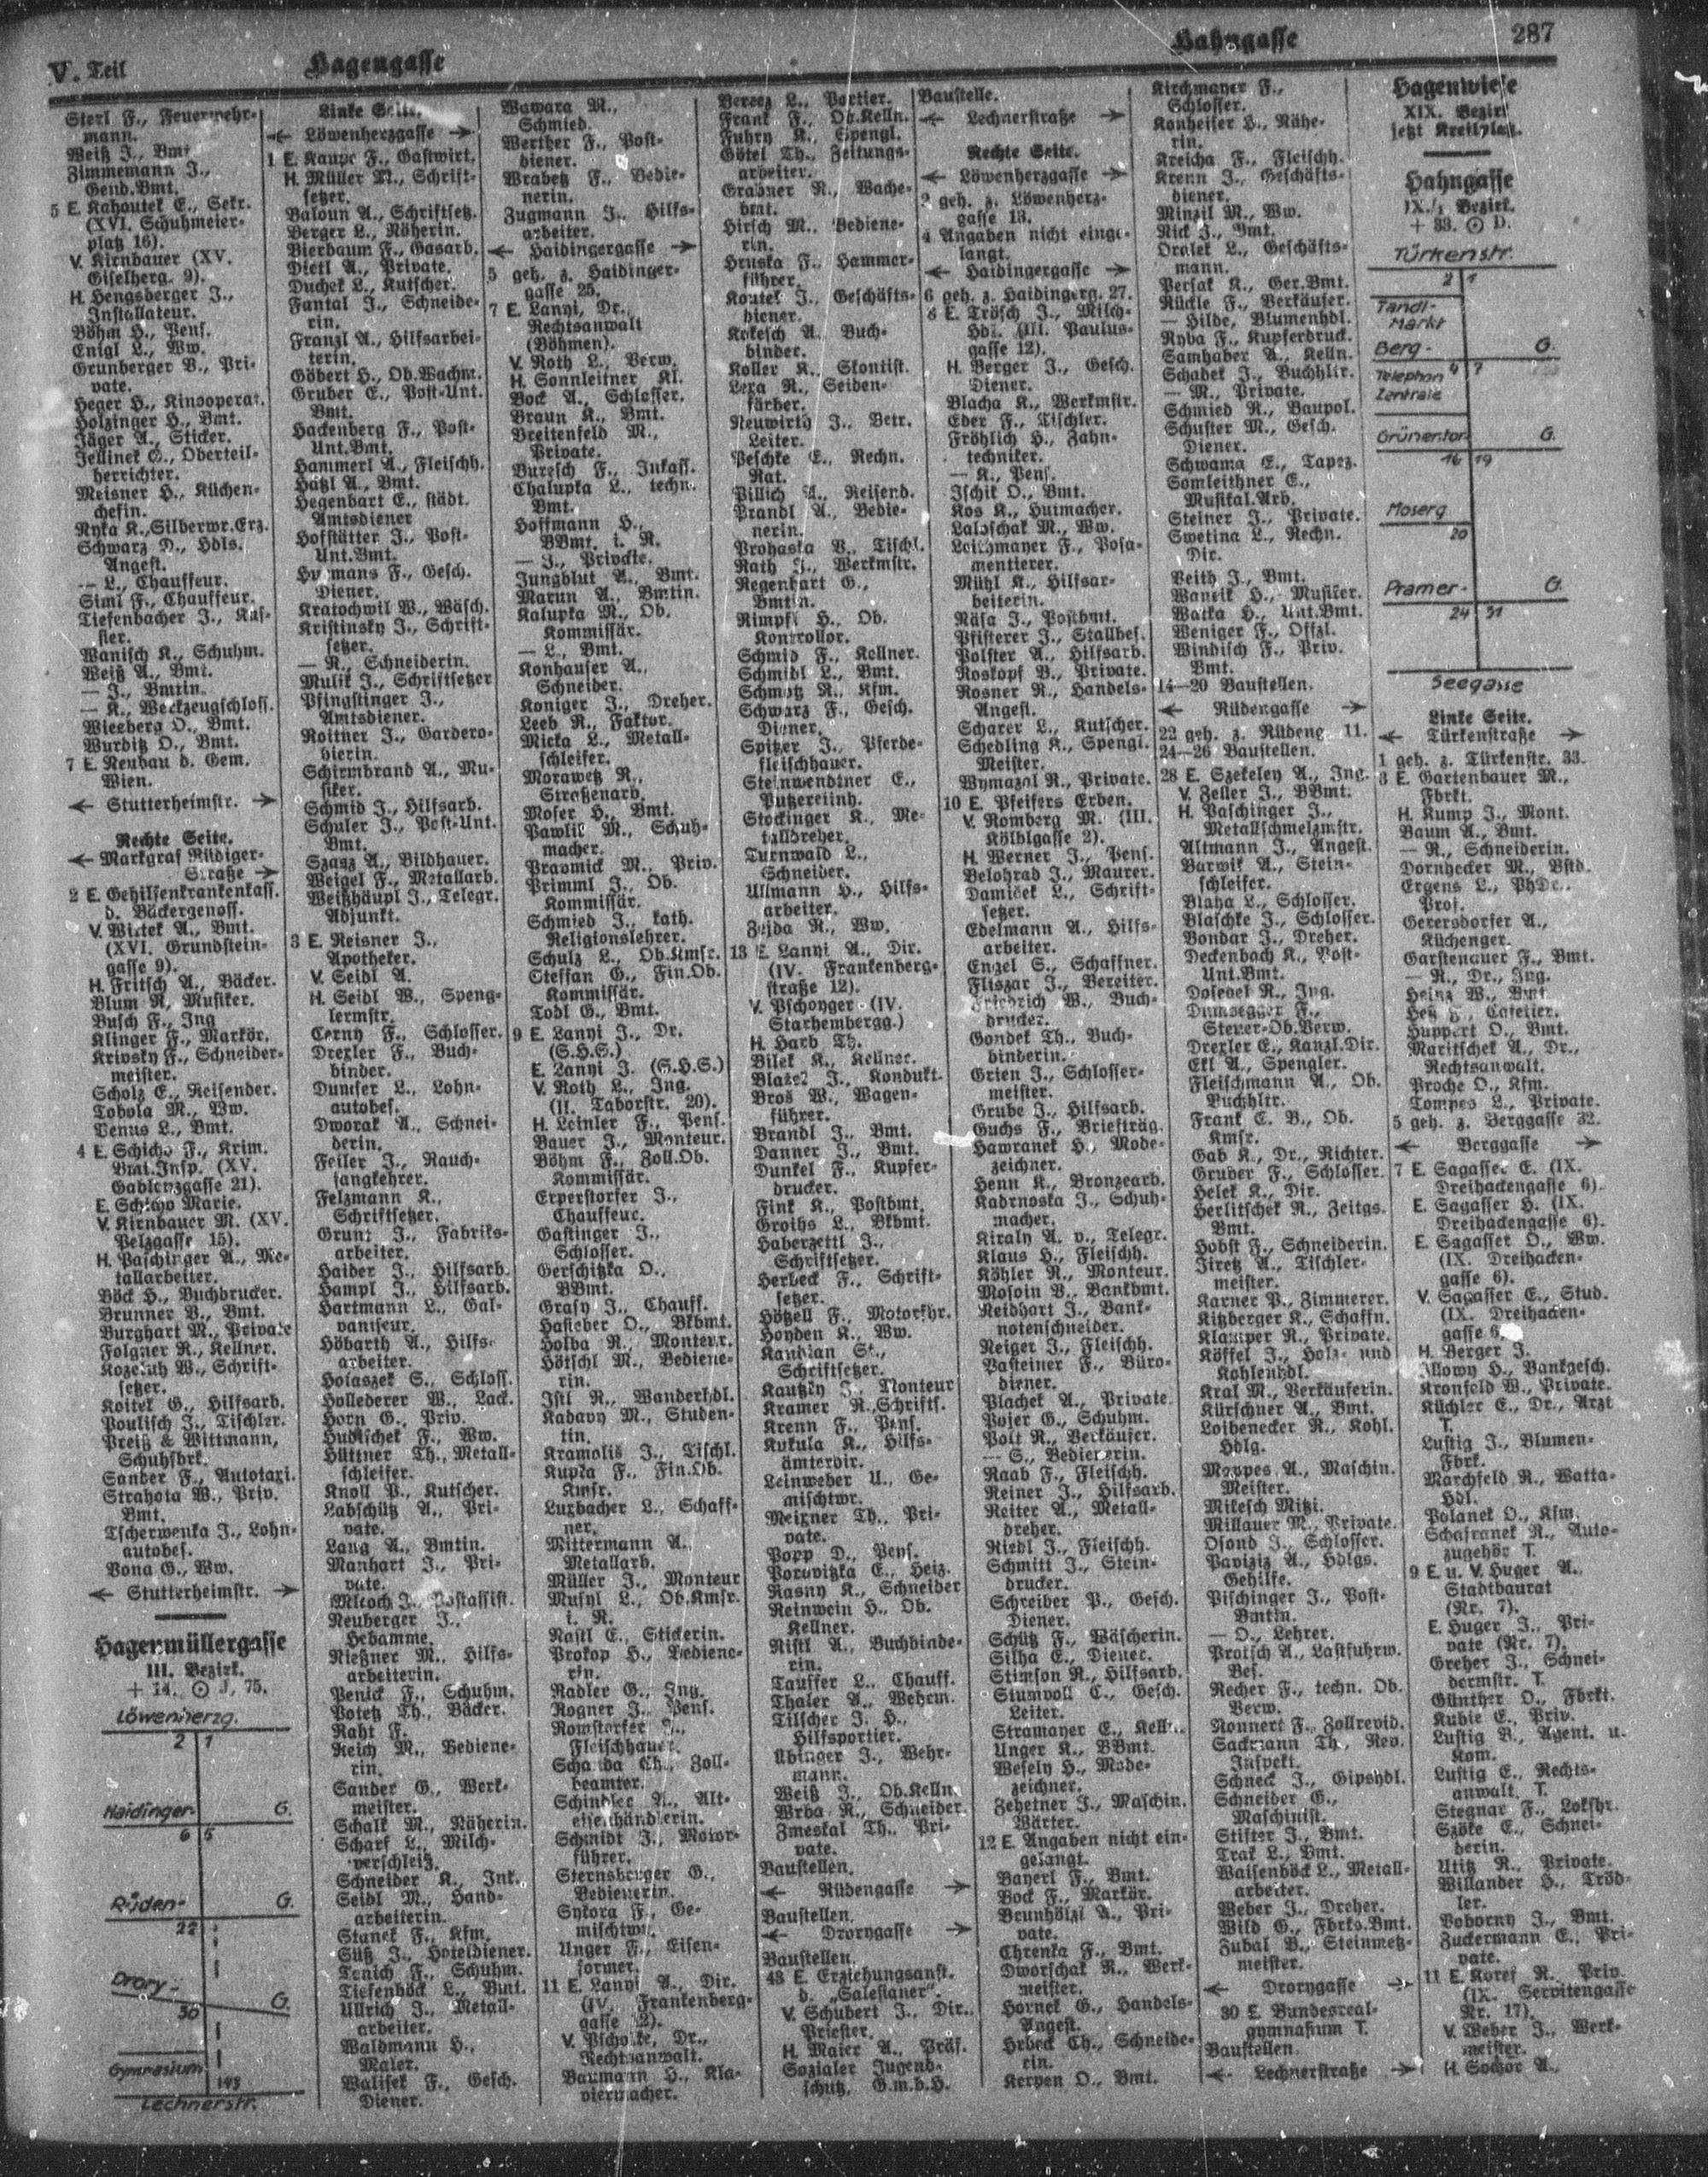 V. Teil
Hagengasse
Hahngasse
287
Sterl F., Feuerwehr-
mann.
Weiß J., Bmt.
Zimmemann J.,
Gend.Bmt.
5 E. Kahoutek E., Sekr.
(XVI. Schuhmeier-
platz 16).
V. Kirnbauer (XV.
Giselherg. 9).
H. Hengsberger J.,
Installateur.
Böhm H., Pens.
Enigl L., Ww.
Grünberger V., Pri-
vate.
Heger H., Kinooperat.
Holzinger H., Bmt.
Jäger A., Sticker.
Jellinek G., Oberteil-
herrichter.
Meisner H., Küchen-
chefin.
Ryka K., Silberwr.Erz.
Schwarz D., Hdls.
Angest.
— L., Chauffeur.
Siml F., Chauffeur.
Tiefenbacher J., Kas-
sier.
Wanisch K., Schuhm.
Weiß A., Bmt.
— J., Bmtin.
— K., Werkzeugschloss.
Wieeberg O., Bmt.
Wurditz O., Bmt.
7 E. Neubau d. Gem.
Wien.
← Stutterheimstr. →
Rechte Seite.
← Markgraf Rüdiger-
Straße →
2 E. Gehilfenkrankenkass.
d. Bäckergenoss.
V. Wictek A., Bmt.
(XVI. Grundstein-
gasse 9).
H. Fritsch A., Bäcker.
Blum R., Musiker.
Busch F., Ing.
Klinger F., Markör.
Krivsky F., Schneider-
meister.
Scholz E., Reisender.
Tobola M., Ww.
Venus L., Bmt.
4 E. Schicho F., Krim.
Bmt.Insp. (XV.
Gablenzgasse 21).
E. Schicho Marie.
V. Kirnbauer M. (XV.
Pelzgasse 15).
H. Paschinger A., Me-
tallarbeiter.
Böck H., Buchdrucker.
Brunner V., Bmt.
Burghart M., Private
Folgner R., Kellner.
Kozeluh W., Schrift-
setzer.
Koitek G., Hilfsarb.
Poulisch J., Tischler.
Preiß & Wittmann,
Schuhfbrk.
Sander F., Autotaxi.
Strahota W., Priv.
Bmt.
Tscherwenka J., Lohn-
autobes.
Vona G., Ww.
← Stutterheimstr. →
Hagenmüllergasse
III. Bezirk.
+ 14. ⊙ J, 75.
Löwenherzg.
2 1
Haidinger- G.
6 5
Rüden- G.
22
Drory- G.
30
Gymnasium
143
Lechnerstr.
Linke Seite.
← Löwenherzgasse →
1 E. Kaupe F., Gastwirt.
H. Müller M., Schrift-
setzer.
Baloun A., Schriftsetz.
Berger L., Näherin.
Bierbaum F., Gasarb.
Dietl A., Private.
Duchek L., Kutscher.
Fantal J., Schneide-
rin.
Franzl A., Hilfsarbei-
terin.
Göbert H., Ob.Wachm.
Gruber E., Post-Unt.
Bmt.
Hackenberg F., Post-
Unt.Bmt.
Hammerl A., Fleischh.
Hatzl A., Bmt.
Hegenbart E., städt.
Amtsdiener
Hofstätter J., Post-
Unt.Bmt.
Hermans F., Gesch.
Diener.
Kratochwil W., Wäsch.
Kristinsky J., Schrift-
setzer.
— R., Schneiderin.
Mulik J., Schriftsetzer
Pfingstinger J.,
Amtsdiener.
Roitner J., Gardero-
bierin.
Schirmbrand A., Mu-
siker.
Schmid J., Hilfsarb.
Schuler J., Post-Unt.
Bmt.
Szasz A., Bildhauer.
Weigel F., Metallarb.
Weißhäupl J., Telegr.
Adjunkt.
3 E. Reisner J.,
Apotheker.
V. Seidl A.
H. Seidl W., Speng-
lermstr.
Cerny F., Schlosser.
Drexler F., Buch-
binder.
Dunker L., Lohn-
autobes.
Dworak A., Schnei-
derin.
Feiler J., Rauch-
fangkehrer.
Felzmann K.,
Schriftsetzer.
Grunt J., Fabriks-
arbeiter.
Haider J., Hilfsarb.
Hampl J., Hilfsarb.
Hartmann L., Gal-
vaniseur.
Höbarth A., Hilfs-
arbeiter.
Holaszek S., Schloss.
Hollederer W., Lack.
Horn G., Priv.
Hudischek F., Ww.
Hüttner Th., Metall-
schleifer.
Knoll P., Kutscher.
Labschütz A., Pri-
vate.
Lang A., Bmtin.
Manhart J., Pri-
vate.
Mlcoch J., Postassist.
Neuberger J.,
Hebamme.
Nießner M., Hilfs-
arbeiterin.
Penick F., Schuhm.
Potetz Th., Bäcker.
Raht F.
Reich M., Bediene-
rin.
Sander G., Werk-
meister.
Schalk M., Näherin.
Scharf L., Milch-
verschleiß.
Schneider K., Ink.
Seidl M., Hand-
arbeiterin.
Stanek F., Kfm.
Süß J., Hoteldiener.
Tenich F., Schuhm.
Tiefenböck L., Bmt.
Ullrich J., Metall-
arbeiter.
Waldmann H.,
Maler.
Walisek F., Gesch.
Diener.
Wawara M.,
Schmied.
Werther F., Post-
diener.
Wrabetz F., Bedie-
nerin.
Zugmann J., Hilfs-
arbeiter.
← Haidingergasse →
5 geh. z. Haidinger-
gasse 25.
7 E. Lanyi, Dr.,
Rechtsanwalt
(Böhmen).
V. Roth L., Verw.
H. Sonnleitner Kl.
Bock A., Schlosser.
Braun K., Bmt.
Breitenfeld M.,
Private.
Buresch F., Inkass.
Chalupka L., techn.
Bmt.
Hoffmann H.,
BBmt. i. R.
— J., Private.
Jungblut A., Bmt.
Marun A., Bmtin.
Kalupka M., Ob.
Kommissär.
— L., Bmt.
Konhauser A.,
Schneider.
Koniger J., Dreher.
Leeb R., Faktor.
Micka L., Metall-
schleifer.
Morawetz R.,
Straßenarb.
Moser H., Bmt.
Pawlik M., Schuh-
macher.
Pravmick M., Priv.
Primml J., Ob.
Kommissär.
Schmied J., kath.
Religionslehrer.
Schulz L., Ob.Kmsr.
Steffan G., Fin.Ob.
Kommissär.
Todl G., Bmt.
9 E. Lanyi J., Dr.
(S.H.S.)
E. Lanyi J. (S.H.S.)
V. Roth L., Ing.
(II. Taborstr. 20).
H. Leinler F., Pens.
Bauer J., Monteur.
Böhm F., Zoll.Ob.
Kommissär.
Erperstorfer J.,
Chauffeur.
Gastinger J.,
Schlosser.
Gerschitzka O.,
BBmt.
Grasy J., Chauff.
Hasieber O., Bkbmt.
Holba R., Monteur.
Hötschl M., Bediene-
rin.
Istl R., Wanderhdl.
Kadavy M., Studen-
tin.
Kramolis J., Tischl.
Kupka F., Fin.Ob.
Kmsr.
Luxbacher L., Schaff-
ner.
Mittermann A.,
Metallarb.
Müller J., Monteur
Musyl L., Ob.Kmsr.
i. R.
Nastl E., Stickerin.
Prokop H., Bediene-
rin.
Radler G., Ing.
Rogner J., Pens.
Romstorfer J.,
Fleischhauer.
Schanda Ch., Zoll-
beamter.
Schindler A., Alt-
eisenhändlerin.
Schmidt J., Motor-
führer.
Sternsberger G.,
Bedienerin.
Sykora F., Ge-
mischtwr.
Unger F., Eisen-
former.
11 E. Lanyi A., Dir.
(IV. Frankenberg-
gasse 12).
V. Pscholke, Dr.,
Rechtsanwalt.
Baumann H., Kla-
viermacher.
Berecz L., Portier.
Frank F., Ob.Kelln.
Fuhry K., Spengl.
Götel Th., Zeitungs-
arbeiter.
Grabner R., Wache-
bmt.
Hirsch M., Bediene-
rin.
Hruska F., Hammer-
führer.
Koutek J., Geschäfts-
diener.
Krkesch A., Buch-
binder.
Koller K., Skontist.
Lexa R., Seiden-
färber.
Neuwirth J., Betr.
Leiter.
Peschke E., Rechn.
Rat.
Pillich A., Reisend.
Prandl A., Bedie-
nerin.
Prohaska V., Tischl.
Rath J., Werkmstr.
Regenhart G.,
Bmtin.
Rimpfl H., Ob.
Kontrollor.
Schmid F., Kellner.
Schmidl L., Bmt.
Schmotz R., Kfm.
Schwarz F., Gesch.
Diener.
Spitzer J., Pferde-
fleischhauer.
Steinwendtner E.,
Putzereiinh.
Stockinger K., Me-
talldreher.
Turnwald L.,
Schneider.
Ullmann H., Hilfs-
arbeiter.
Zejda R., Ww.
13 E. Lanyi A., Dir.
(IV. Frankenberg-
straße 12).
V. Pschonger (IV.
Starhembergg.)
H. Harb Th.
Bilek K., Kellner.
Blazek J., Kondukt.
Bros W., Wagen-
führer.
Brandl J., Bmt.
Danner J., Bmt.
Dunkel F., Kupfer-
drucker.
Fink K., Postbmt.
Groihs L., Bkbmt.
Haberzettl J.,
Schriftsetzer.
Herbeck F., Schrift-
setzer.
Hötzell F., Motorfhr.
Hoyden K., Ww.
Kandian St.,
Schriftsetzer.
Kautzky J., Monteur
Kramer R., Schrifts.
Krenn F., Pens.
Kukula K., Hilfs-
ämterdir.
Leinweber U., Ge-
mischtwr.
Meixner Th., Pri-
vate.
Popp D., Pens.
Porovitzka E., Heiz.
Rasny K., Schneider
Reinwein H., Ob.
Kellner.
Ristl A., Buchbinde-
rin.
Tauffer L., Chauff.
Thaler A., Wehrm.
Tilscher J. H.,
Hilfsportier.
Übinger J., Wehr-
mann.
Weiß J., Ob.Kelln.
Wrba R., Schneider.
Zmeskal Th., Pri-
vate.
Baustellen.
← Rüdengasse →
Baustellen.
← Drorygasse →
Baustellen.
43 E. Erziehungsanst.
d. „Salesianer“.
V. Schubert J., Dir.,
Priester.
H. Maier A., Präs.
Sozialer Jugend-
schutz, G.m.b.H.
Baustelle.
← Lechnerstraße →
Rechte Seite.
← Löwenherzgasse →
2 geh. z. Löwenherz-
gasse 13.
4 Angaben nicht einge-
langt.
← Haidingergasse →
6 geh. z. Haidingerg. 27.
8 E. Trösch J., Milch-
Hdl. (III. Paulus-
gasse 12).
H. Berger J., Gesch.
Diener.
Blacha K., Werkmstr.
Eder F., Tischler.
Fröhlich H., Zahn-
techniker.
— K., Pens.
Ischik O., Bmt.
Kos K., Hutmacher.
Labschak M., Ww.
Leichmayer F., Posa-
mentierer.
Mühl K., Hilfsar-
beiterin.
Näsa J., Postbmt.
Pfisterer J., Stallbes.
Polster A., Hilfsarb.
Roskopf B., Private.
Rosner R., Handels-
Angest.
Scharer L., Kutscher.
Schedling K., Spengl.
Meister.
Wymazal R., Private.
10 E. Pfeifers Erben.
V. Romberg M. (III.
Kölblgasse 2).
H. Werner J., Pens.
Belohrad J., Maurer.
Damiček L., Schrift-
setzer.
Edelmann A., Hilfs-
arbeiter.
Enzel S., Schaffner.
Fliszar J., Bereiter.
Friedrich W., Buch-
drucker.
Gondek Th., Buch-
binderin.
Grien J., Schlosser-
meister.
Grube J., Hilfsarb.
Guchs F., Briefträg.
Hawranek H., Mode-
zeichner.
Henn K., Bronzearb.
Kadrnoska J., Schuh-
macher.
Kiraly A. v., Telegr.
Klaus H., Fleischh.
Köhler R., Monteur.
Mosoin V., Bankbmt.
Neidhart J., Bank-
notenschneider.
Neiger J., Fleischh.
Pasteiner F., Büro-
diener.
Plachek A., Private.
Pojer G., Schuhm.
Polt R., Verkäufer.
— S., Bedienerin.
Raab F., Fleischh.
Reiner J., Hilfsarb.
Reiter A., Metall-
dreher.
Riedl J., Fleischh.
Schmitt J., Stein-
drucker.
Schreiber P., Gesch.
Diener.
Schütz F., Wäscherin.
Silha E., Diener.
Stimson R., Hilfsarb.
Stumvoll C., Gesch.
Leiter.
Stramayer E., Kelln.
Unger K., BBmt.
Wesely H., Mode-
zeichner.
Zehetner J., Maschin.
Wärter.
12 E. Angaben nicht ein-
gelangt.
Bayerl F., Bmt.
Bock F., Markör.
Brunhölzl A., Pri-
vate.
Chrenka F., Bmt.
Dworschak R., Werk-
meister.
Hornek G., Handels-
Angest.
Hrbeck Ch., Schneide-
rin.
Kerpen O., Bmt.
Kirchmayer F.,
Schlosser.
Konheiser H., Nähe-
rin.
Kreicha F., Fleischh.
Krenn J., Geschäfts-
diener.
Minzil M., Ww.
Nick J., Bmt.
Oralek L., Geschäfts-
mann.
Persak K., Ger.Bmt.
Rückle F., Verkäufer.
— Hilde, Blumenhdl.
Ryba F., Kupferdruck.
Samhaber A., Kelln.
Schadek J., Buchhltr.
— M., Private.
Schmied R., Baupol.
Schuster M., Gesch.
Diener.
Schwama E., Tapez.
Somleithner E.,
Musikal.Arb.
Steiner J., Private.
Swetina L., Rechn.
Dir.
Veith J., Bmt.
Wancik H., Musiker.
Watka H., Unt.Bmt.
Weniger F., Offzl.
Windisch F., Priv.
Bmt.
14—20 Baustellen.
← Rüdengasse →
22 geh. z. Rüdeng. 11.
24—26 Baustellen.
28 E. Szekeley A., Ing.
V. Zeller J., BBmt.
H. Paschinger J.,
Metallschmelzmstr.
Altmann J., Angest.
Barwik A., Stein-
schleifer.
Blaha L., Schlosser.
Blaschke J., Schlosser.
Bondar J., Dreher.
Deckenbach K., Post-
Unt.Bmt.
Dosedel R., Ing.
Dumsegger F.,
Steuer-Ob.Verw.
Drexler E., Kanzl.Dir.
Ekl A., Spengler.
Fleischmann A., Ob.
Buchhltr.
Frank E. B., Ob.
Kmsr.
Gab K., Dr., Richter.
Gruber F., Schlosser.
Helek K., Dir.
Herlitschek R., Zeitgs.
Bmt.
Hobst F., Schneiderin.
Jiretz A., Tischler-
meister.
Karner P., Zimmerer.
Kitzberger K., Schaffn.
Klamper R., Private.
Köffel J., Holz- und
Kohlenhdl.
Kral M., Verkäuferin.
Kürschner A., Bmt.
Loibenecker R., Kohl.
Hdlg.
Moppes A., Maschin.
Meister.
Mikesch Mitzi.
Millauer M., Private.
Osond J., Schlosser.
Pavizis A., Hdlgs.
Gehilfe.
Pischinger J., Post-
Bmtin.
— O., Lehrer.
Protsch A., Lastfuhrw.
Bes.
Recher F., techn. Ob.
Verw.
Ronnert F., Zollrevid.
Sackmann Th., Rev.
Inspekt.
Schneck J., Gipshdl.
Schneider G.,
Maschinist.
Stifter J., Bmt.
Trak L., Bmt.
Waisenböck L., Metall-
arbeiter.
Weber J., Dreher.
Wild G., Fbrks.Bmt.
Zubal V., Steinmetz-
meister.
← Drorygasse →
30 E. Bundesreal-
gymnasium T.
Baustellen.
← Lechnerstraße →
Hagenwiese
XIX. Bezirk
jetzt Kreilplatz.
Hahngasse
IX./1 Bezirk.
+ 33. ⊙ D.
Türkenstr.
2 1
Tandl-
Markt
Berg- G.
4 7
Telephon
Zentrale
Grünentor G.
16 19
Moserg
20
Pramer- G.
24 31
Seegasse
Linke Seite.
← Türkenstraße →
1 geh. z. Türkenstr. 33.
3 E. Gartenbauer M.,
Fbrkt.
H. Kump J., Mont.
Baum A., Bmt.
— R., Schneiderin.
Dornhecker M., Bstd.
Ergens L., PhDr.,
Prof.
Gerersdorfer A.,
Küchenger.
Garstenauer F., Bmt.
— R., Dr., Ing.
Heinz W., Bmt.
Heß F., Cafetier.
Huppert O., Bmt.
Maritschek A., Dr.,
Rechtsanwalt.
Proche O., Kfm.
Tompes L., Private.
5 geh. z. Berggasse 32.
← Berggasse →
7 E. Sagasser E. (IX.
Dreihackengasse 6).
E. Sagasser H. (IX.
Dreihackengasse 6).
E. Sagasser O., Ww.
(IX. Dreihacken-
gasse 6).
V. Sagasser E., Stud.
(IX. Dreihacken-
gasse 6
H. Berger J.
Illowy H., Bankgesch.
Kronfeld W., Private.
Küchler E., Dr., Arzt
T.
Lustig J., Blumen-
Fbrk.
Marchfeld R., Watta-
Hdl.
Polanek O., Kfm.
Schafranek R., Auto-
zugehör T.
9 E. u. V. Huger A.,
Stadtbaurat
(Nr. 7).
E. Huger J., Pri-
vate (Nr. 7).
Greher J., Schnei-
dermstr. T.
Günther O., Fbrkt.
Kubie E., Priv.
Lustig B., Agent. u.
Kom.
Lustig E., Rechts-
anwalt. T.
Stegnar F., Lokfhr.
Szöke E., Schnei-
derin.
Utitz R., Private.
Willander H., Tröd-
ler.
Voborny J., Bmt.
Zuckermann E., Pri-
vate.
11 E. Koref R., Priv.
(IX. Servitengasse
Nr. 17).
V. Weber J., Werk-
meister.
H. Sochor A.,